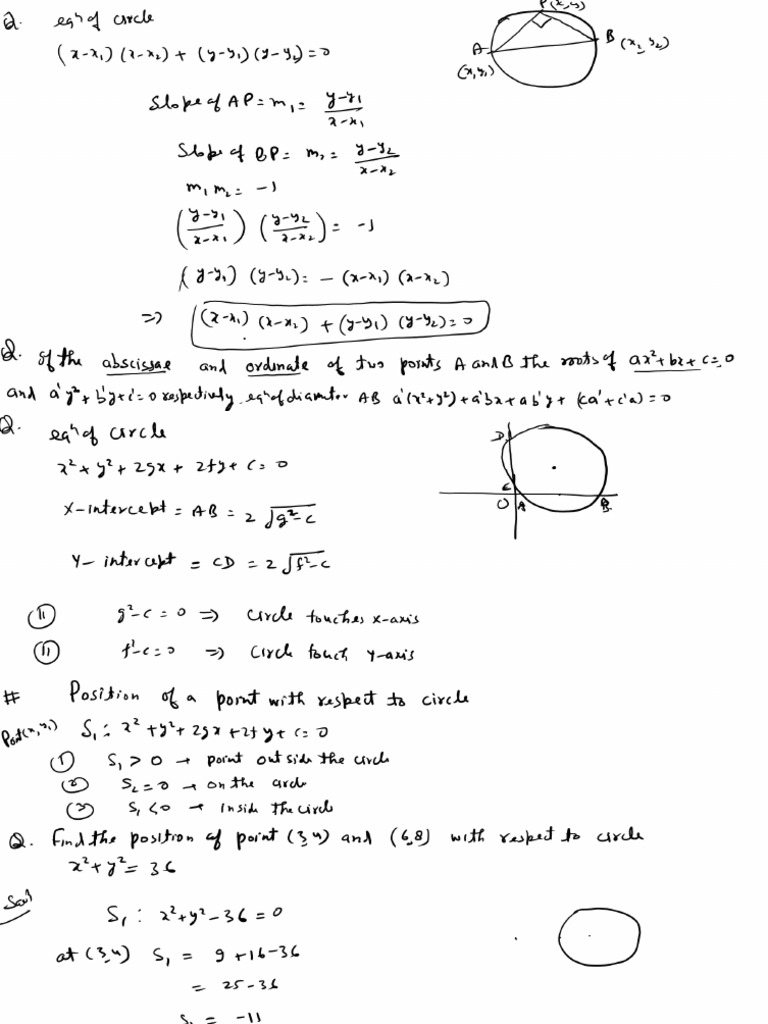 Q. eqⁿ of circle
P(x,y)
(x-x₁) (x-x₂) + (y-y₁) (y-y₂) = 0
A
B (x₂ y₂)
(x, y₁)
Slope of AP = m₁ = y-y₁ / x-x₁
Slope of BP = m₂ = y-y₂ / x-x₂
m₁ m₂ = -1
(y-y₁ / x-x₁) (y-y₂ / x-x₂) = -1
(y-y₁) (y-y₂) = - (x-x₁) (x-x₂)
=> (x-x₁) (x-x₂) + (y-y₁) (y-y₂) = 0
Q. of the abscissae and ordinate of two points A and B the roots of ax²+bx+c=0
and a'y²+b'y+c'=0 respectively. eqⁿ of diameter AB a'(x²+y²)+a'bx+ab'y+(ca'+c'a)=0
Q. eqⁿ of circle
x² + y² + 2gx + 2fy + c = 0
D
C
O A B
X-intercept = AB = 2 √g²-c
Y-intercept = CD = 2 √f²-c
(11) g²-c = 0 => circle touches x-axis
(11) f²-c = 0 => circle touch y-axis
# Position of a point with respect to circle
Point(x, y₁) S₁ : x² + y² + 2gx + 2fy + c = 0
(1) S₁ > 0 → point outside the circle
(2) S₂ = 0 → on the circle
(3) S₁ < 0 → inside the circle
Q. Find the position of point (3,4) and (6,8) with respect to circle
x² + y² = 36
Sol
S₁ : x² + y² - 36 = 0
at (3,4) S₁ = 9 + 16 - 36
= 25 - 36
S₁ = -11